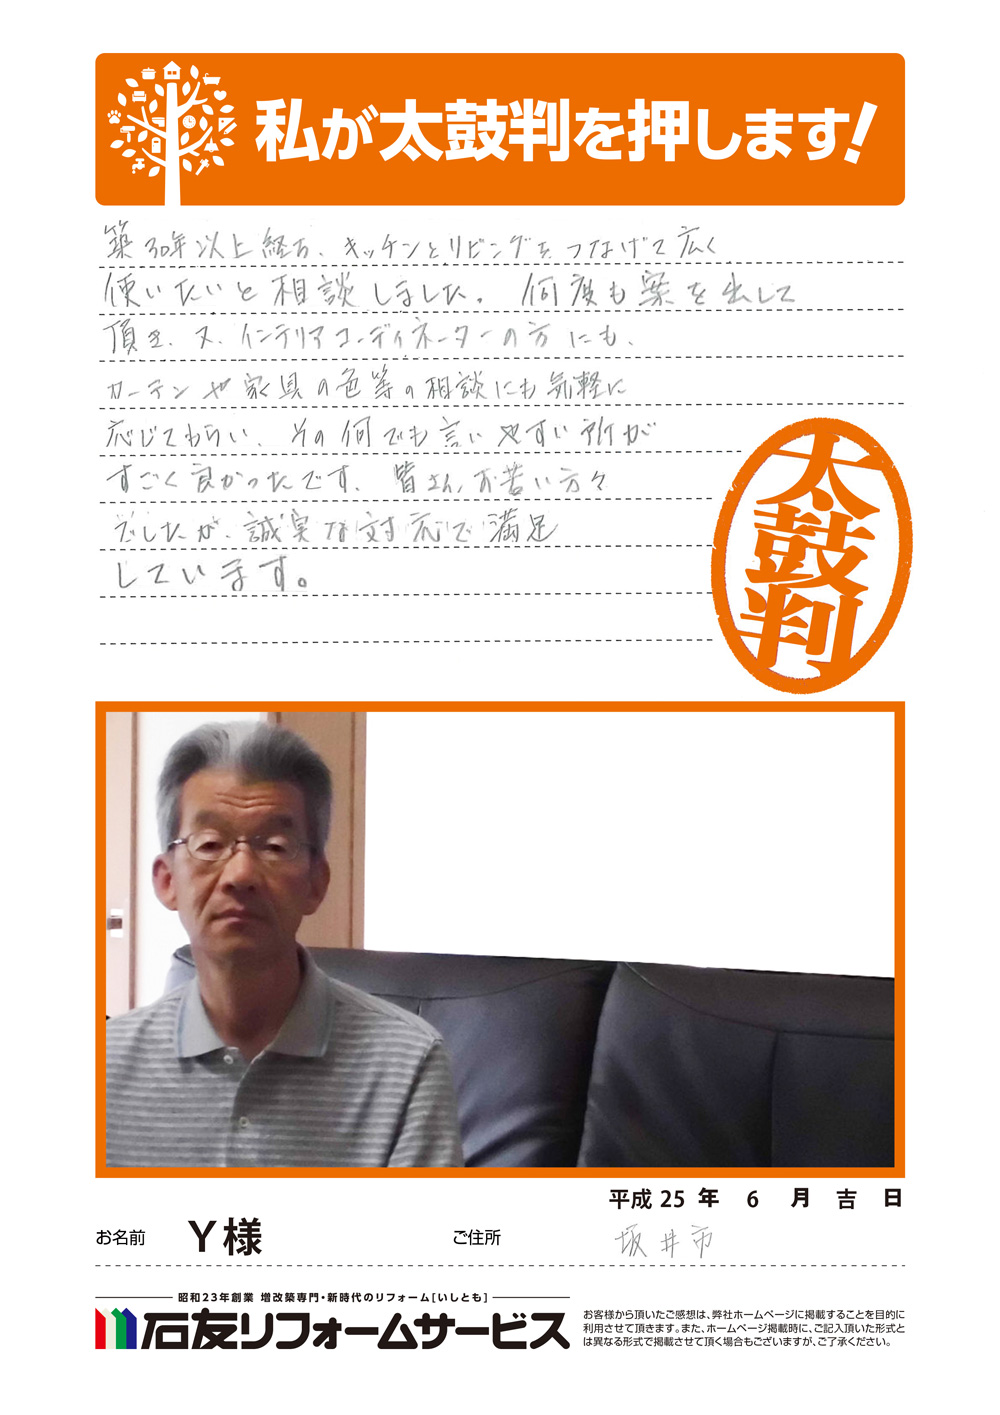 私が太鼓判を押します!
築30年以上経ち、キッチンとリビングをつなげて広く
使いたいと相談しました。何度も案を出して
頂き、又、インテリアコーディネーターの方にも、
カーテンや家具の色等の相談にも気軽に
応じてもらい、その何でも言いやすい所が
すごく良かったです、皆さん、お若い方々
でしたが、誠実な対応で満足
しています。
太鼓判
平成 25 年 6 月 吉 日
お名前 Y様 ご住所 坂井市
昭和23年創業 増改築専門・新時代のリフォーム[いしとも]
石友リフォームサービス
お客様から頂いたご感想は、弊社ホームページに掲載することを目的に
利用させて頂きます。また、ホームページ掲載時に、ご記入頂いた形式と
は異なる形式で掲載させて頂く場合もございますが、ご了承ください。